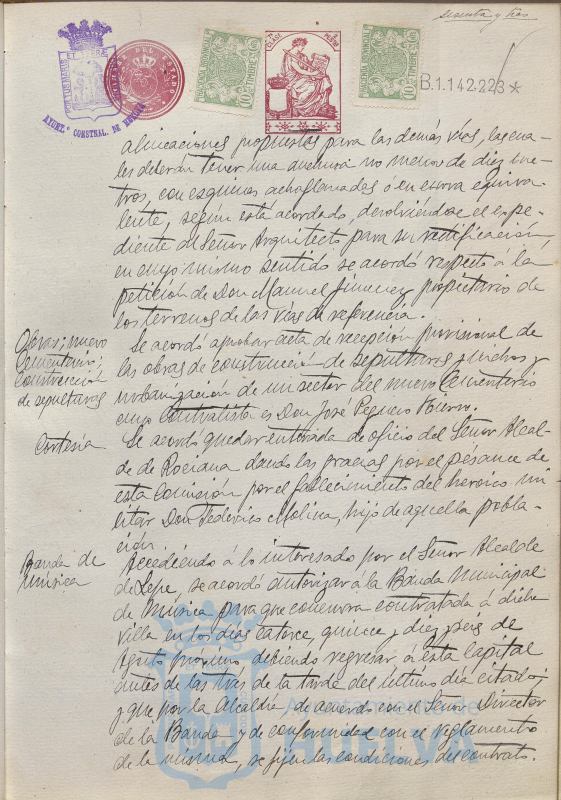 sesenta y tres
B.1.142.223*
CLASE
AYUNT.º CONSTNAL. DE HUELVA
alineaciones propuestas para las demás vías, las cua-
les deberán tener una anchura no menor de diez me-
tros, con esquinas achaflanadas ó en curva equiva-
lente, según está acordado, devolviéndose el expe-
diente al Señor Arquitecto para su rectificación,
en cuyo mismo sentido se acordó respecto á la
petición de Don Manuel Jimenez, propietario de
los terrenos de las vías de referencia.
Obras; nuevo
Cementerio;
Construcción
de sepulturas
Se acordó aprobar acta de recepción provisional de
las obras de construcción de sepulturas y nichos y
urbanización de un sector del nuevo Cementerio
cuyo Contratista es Don José Peguero
Cortesía
Se acordó quedar enterada de oficio del Señor Alcal-
de de Rociana dando las gracias por el pésame de
esta Comisión por el fallecimiento del heroico mi-
litar Don Federico Molina, hijo de aquella pobla-
ción.
Banda de
Música
Accediendo á lo interesado por el Señor Alcalde
de Lepe, se acordó autorizar á la Banda Municipal
de Música para que concurra contratada á dicha
villa en los días catorce, quince y diez y seis de
Agosto próximo, debiendo regresar á esta capital
antes de las tres de la tarde del último día citado;
y que por la Alcaldía, de acuerdo con el Señor Director
de la Banda y de conformidad con el reglamento
de la misma, se fijen las condiciones del contrato.
Ayuntamiento de
HUELVA